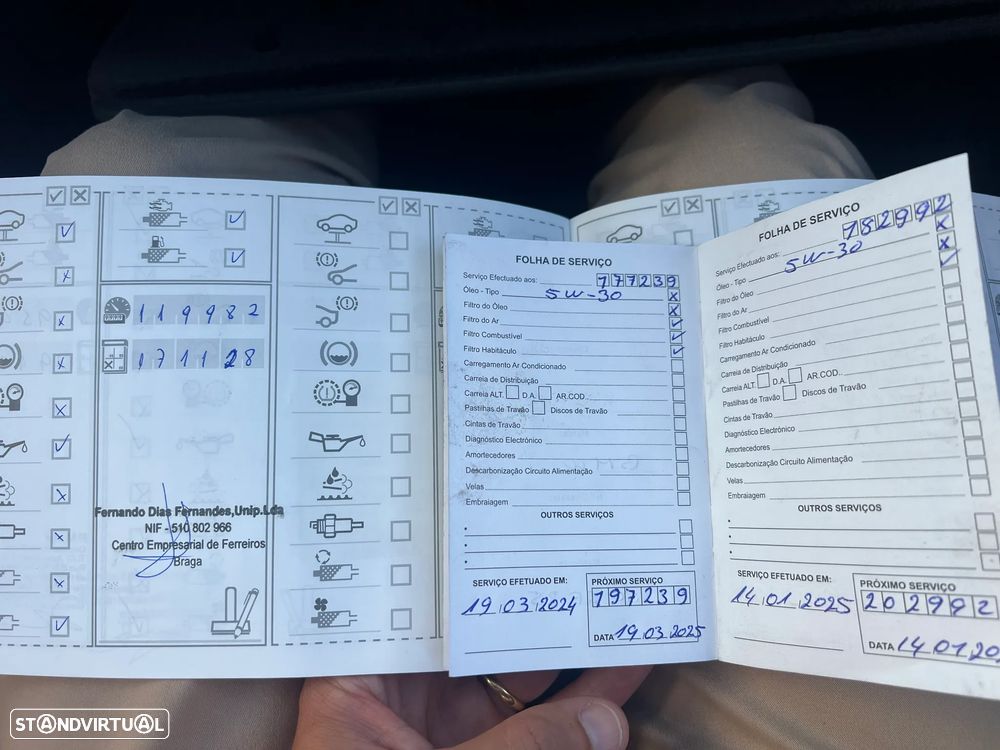 119982
171128
Fernando Dias Fernandes,Unip.Lda
NIF - 510 802 966
Centro Empresarial de Ferreiros
Braga
FOLHA DE SERVIÇO
Serviço Efectuado aos: 177239
Óleo - Tipo 5W-30
Filtro do Óleo
Filtro do Ar
Filtro Combustível
Filtro Habitáculo
Carregamento Ar Condicionado
Carreia de Distribuição
Carreia ALT. D.A. AR.COD..
Pastilhas de Travão Discos de Travão
Cintas de Travão
Diagnóstico Electrónico
Amortecedores
Descarbonização Circuito Alimentação
Velas
Embraiagem
OUTROS SERVIÇOS
SERVIÇO EFETUADO EM:
19,03,2024
PRÓXIMO SERVIÇO
197239
DATA 19,03,2025
FOLHA DE SERVIÇO
Serviço Efectuado aos: 182992
Óleo - Tipo 5W-30
Filtro do Óleo
Filtro do Ar
Filtro Combustível
Filtro Habitáculo
Carregamento Ar Condicionado
Carreia de Distribuição
Carreia ALT. D.A. AR.COD..
Pastilhas de Travão Discos de Travão
Cintas de Travão
Diagnóstico Electrónico
Amortecedores
Descarbonização Circuito Alimentação
Velas
Embraiagem
OUTROS SERVIÇOS
SERVIÇO EFETUADO EM:
14,01,2025
PRÓXIMO SERVIÇO
202992
DATA 14,01,20
STANDVIRTUAL